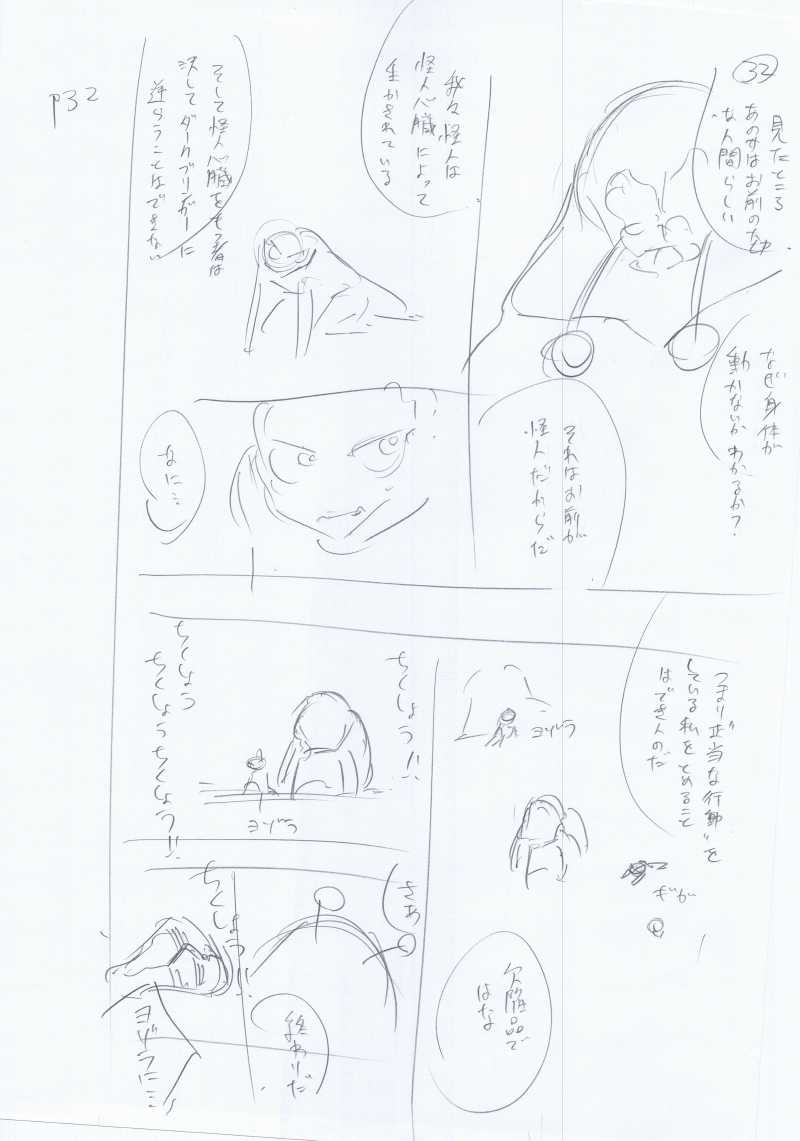 32
P32
見たところ
あの女はお前の大切
な人間らしい
なぜ身体が
動かないか わかるか？
それはお前が
怪人だからだ
我々怪人は
怪人心臓によって
生かされている
そして怪人心臓をもつ者は
決してダークブリンガーに
逆らうことはできない
なに…
つまり正当な行動を
している私をとめること
はできんのだ
ヨゾラ
ぎが
欠陥品で
はな
ちくしょう!!
ヨゾラ
ちくしょう
ちくしょうちくしょう!!
さあ
終わりだ
ちくしょう!!
ヨゾラに…!!